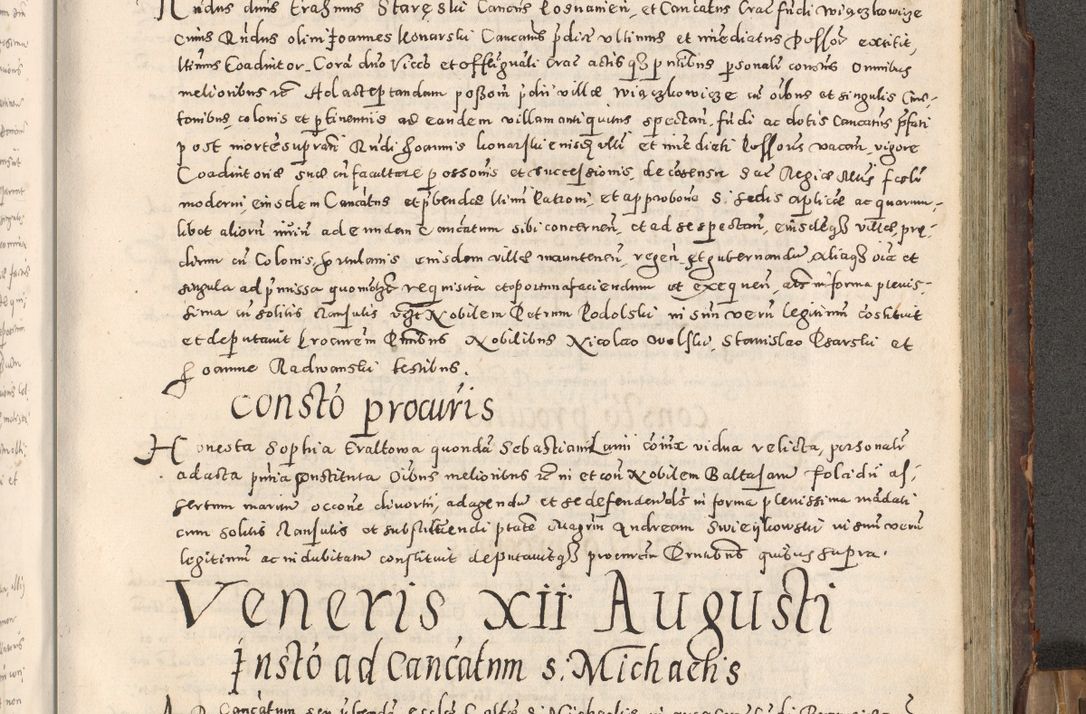 Rndus dnus Erasmus Staręski Cancus Posnanien, et Cancatus Crac fundi Wiączkowicze
Cuius Rndus olim Joannes Konarski Cancanus pdict ultimus et imediatus possor extitit,
ltimus Coadiutor. Cora dno Vicco et offi gnali Crac actis qz pntibus personalr constus omnibus
melioribus rc Ad acceptandam possom pdii villæ Wiączkowicze cu oibus et singulis Cme-
tonibus, colonis et ptinentiis ad eandem villam antiquitus spectan, fundi ac dotis Cancatus pfati
post morte suprati Rndi Joannis Konarski eiusq ulti et imediati possoris vacan, vigore
Coadiutoriæ suæ cu facultate possonis et successionis, de cosensu Sac Regiæ Mtis
moderni, eiusdem Cancatus et pbendæ ltimi et approbone S. Sedis aplicæ ac quarum-
libet aliorum ad eundem Cancatum sibi concernen, et ad se spectan, eiusdeqz villæ, præ-
dium cu Colonis, hortulanis eiusdem villæ manutenen, regen, et gubernandu, Aliaqz oia et
singula ad pmissa quomolt requisita et oportuna faciendum et exequen, in forma plenis-
sima cu solitis clausulis Nobilem Petrum Podolski in suu veru legitimum costituit
et deputavit Procurem Pntibus Nobilibus Nicolao Wolski Stanislao Psarski et
Joanne Radwanski testibus.
Constō procuris
Honesta Sophia Eraltowa quonda Sebastiani Lani coiux vidua relicta, personalr
ad acta pntia constituta Oibus melioribus rc ni et con Nobilem Baltasare Folcidu as-
sertum maritu occone divortii, ad agendu et se defendendu in forma plenissima mandati
cum solitis clausulis et substituendi ptate Magrum Andream Swieykowski in suu veru
legitimum ac indubitatu constituit deputavitqz procurem Pntibus quibus supra.
Veneris XII Augusti
Instō ad Cancatum S. Michaelis